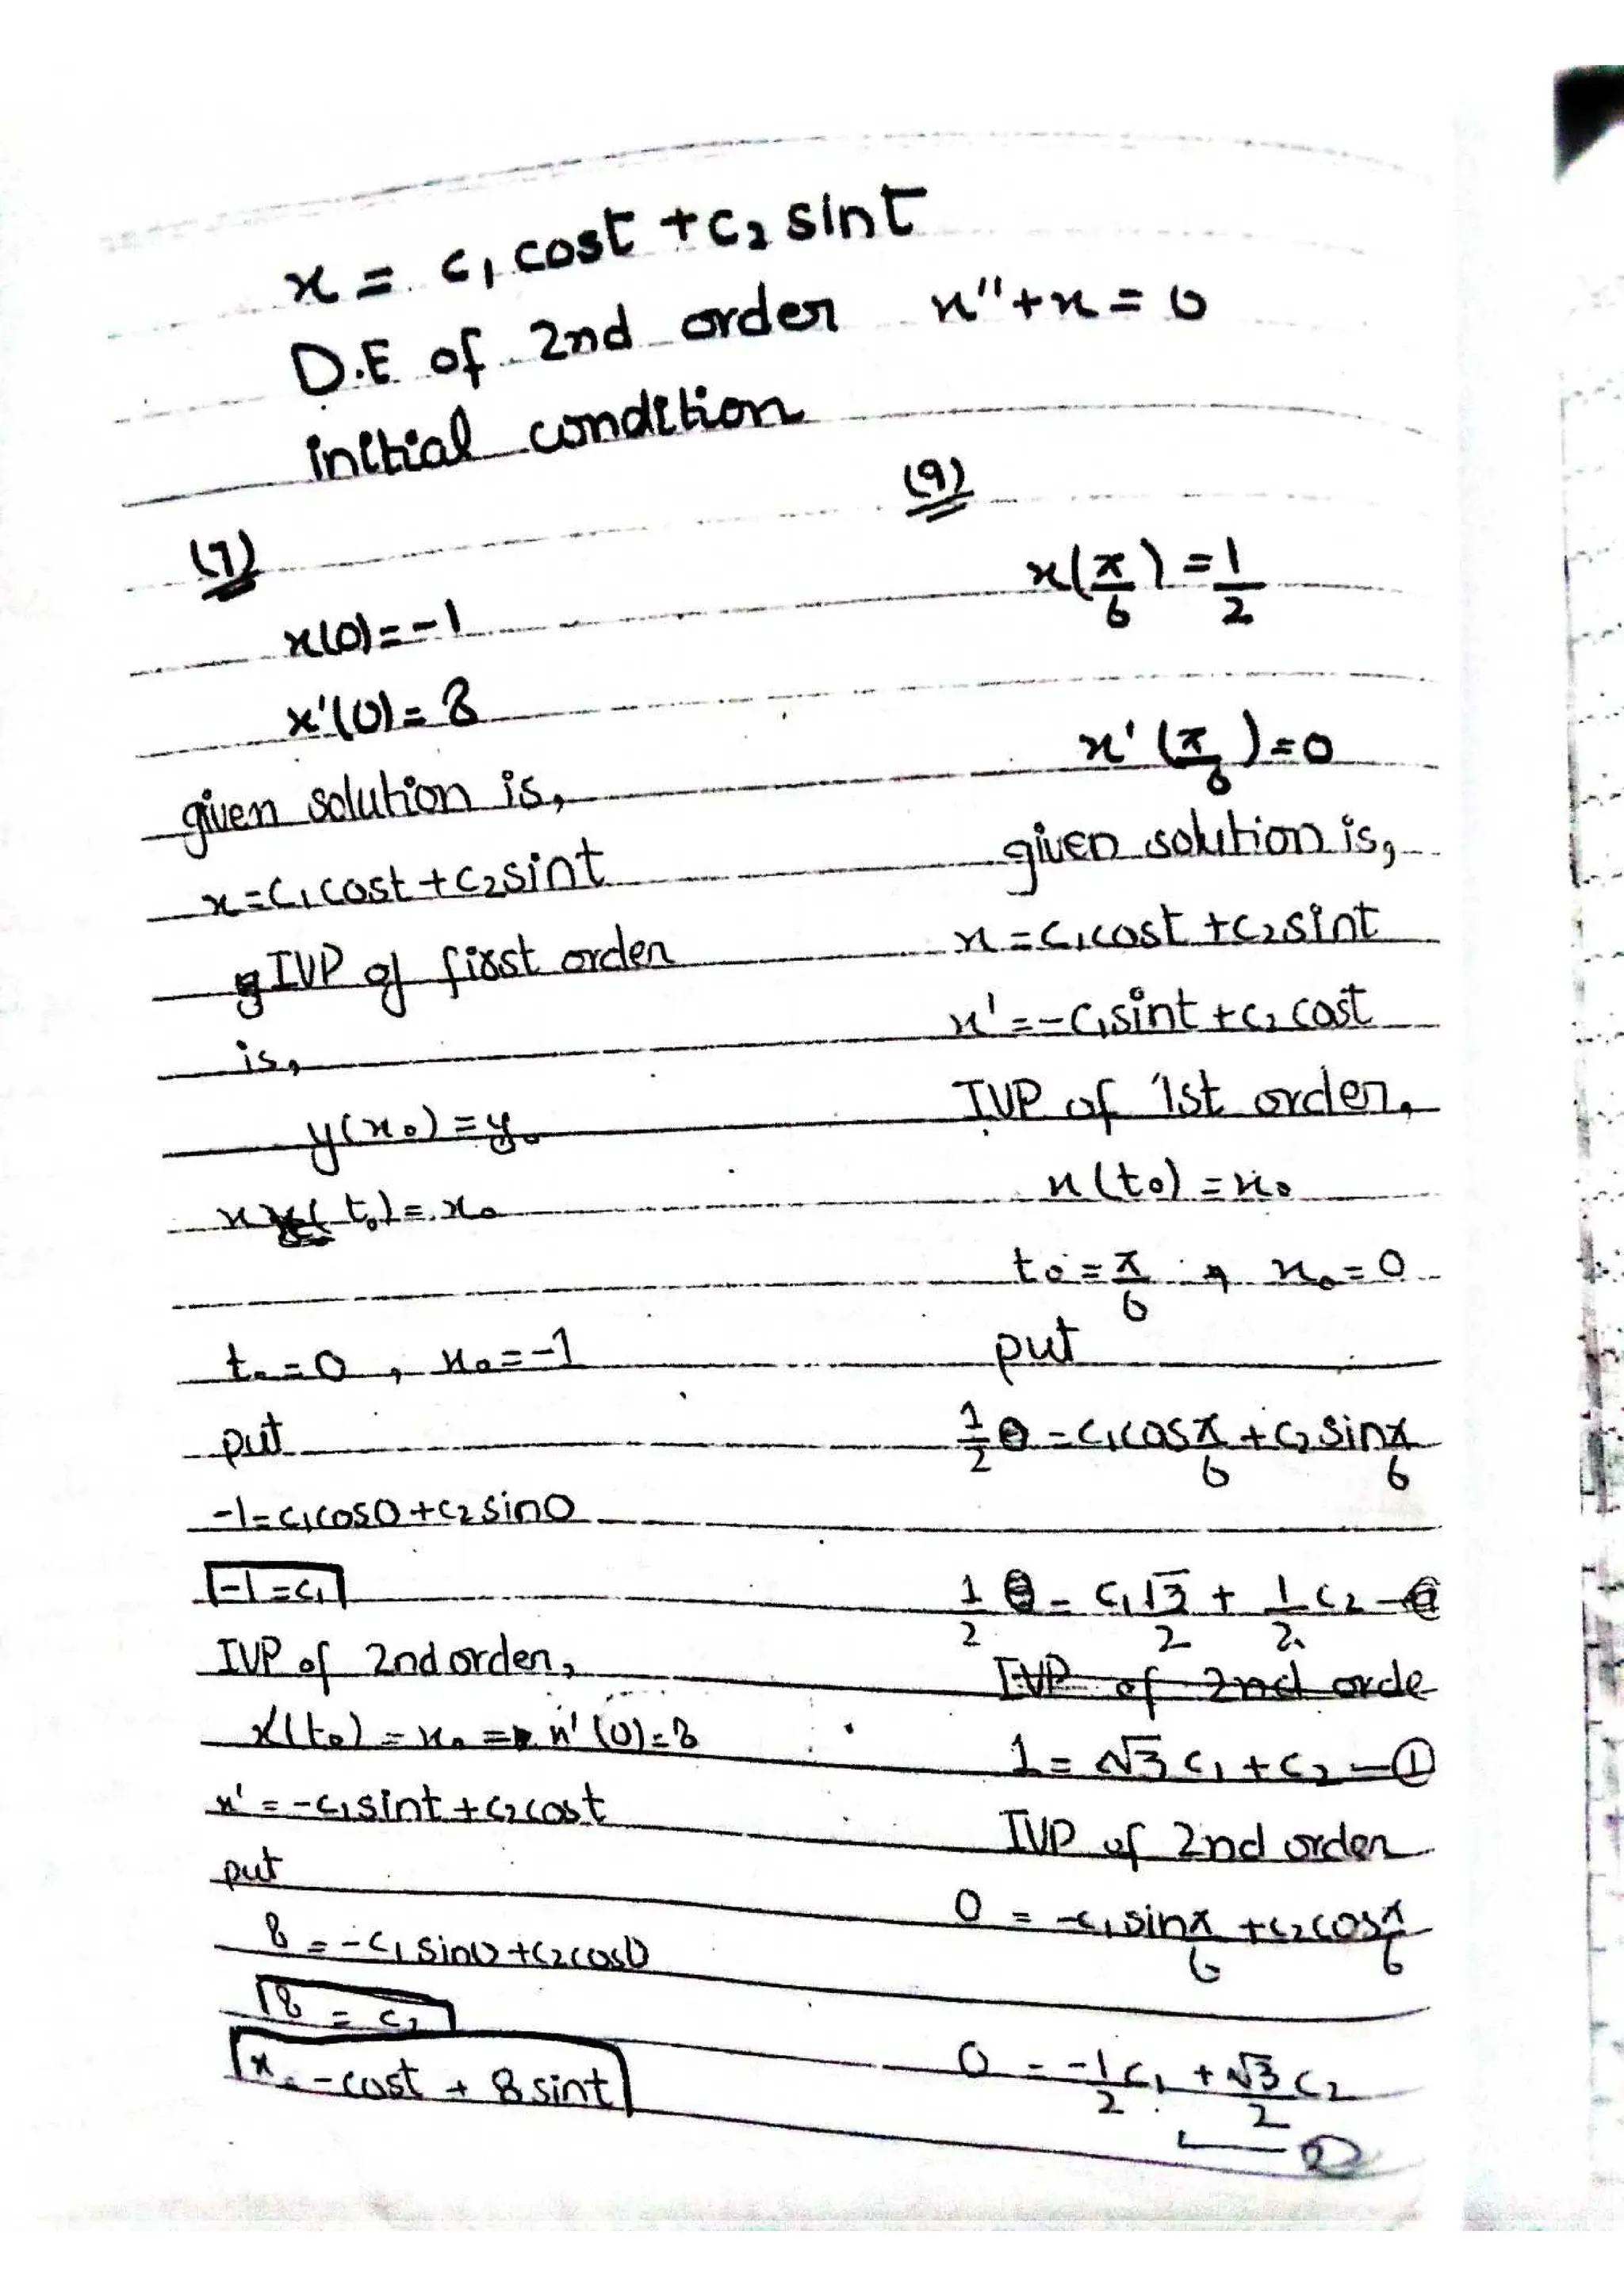 x = c₁ cost + c₂ sint
D.E of 2nd order x'' + x = 0
initial condition
(7)
x(0) = -1
x'(0) = 8
given solution is,
x = c₁cost + c₂sint
IVP of first order
is,
y(x₀) = y₀
x( t₀) = x₀
t₀ = 0 , x₀ = -1
put
-1 = c₁cos0 + c₂sin0
-1 = c₁
IVP of 2nd order,
x'(t₀) = x₀ => x'(0) = 8
x' = -c₁sint + c₂cost
put
8 = -c₁sin0 + c₂cos0
8 = c₂
x = -cost + 8sint
(9)
x(π/6) = 1/2
x'(π/6) = 0
given solution is,
x = c₁cost + c₂sint
x' = -c₁sint + c₂cost
IVP of 1st order,
x(t₀) = x₀
t₀ = π/6 , x₀ = 0
put
1/2 = c₁cosπ/6 + c₂sinπ/6
1/2 = c₁√3/2 + 1/2 c₂
IVP of 2nd orde
1 = √3 c₁ + c₂ — ①
IVP of 2nd order
0 = -c₁sinπ/6 + c₂cosπ/6
0 = -1/2 c₁ + √3/2 c₂
— ②